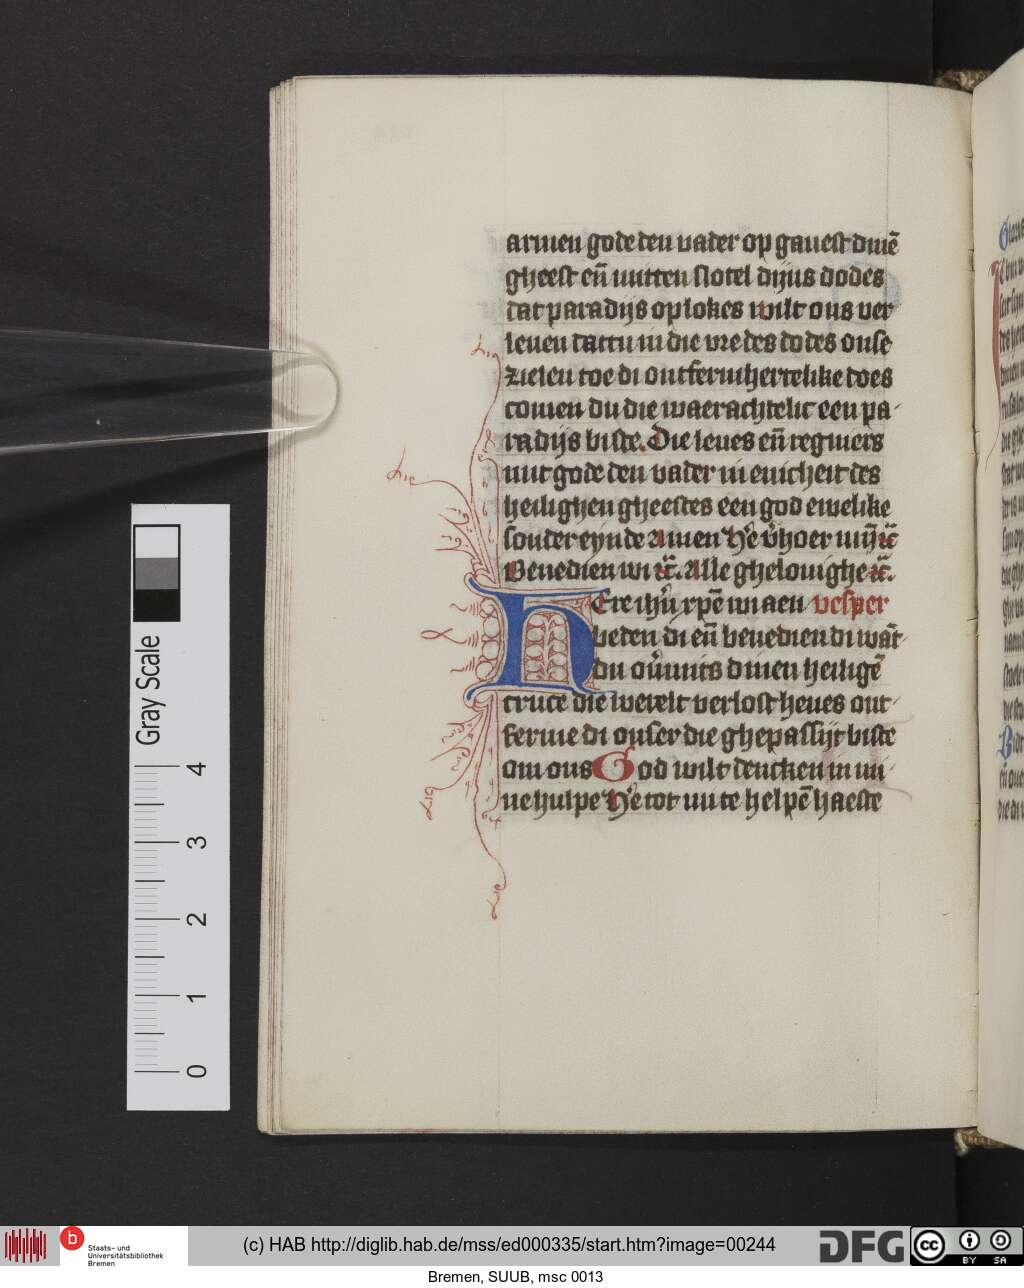 armen gode den vader op gauest dinē
gheest en̄ mitten slotel dijns dodes
dat paradijs oplokes wilt ons ver
lenen dattu in die vre des dodes onse
zielen toe di ontfermhertelike does
comen du die waerachtelic een pa-
radijs biste. Die leues en̄ regniers
mit gode den vader in ewicheit des
heilighen gheestes een god ewelike
sonder eynde Amen He v̄hoer mijn
Benedien wi Alle ghelouighe
Ere ihū xp̄e wi aen vesper
H beden di en̄ benedien di wāt
du ou'mits dinen heiligē
cruce die werelt verlost heues ont-
ferme di onser die ghepassijt biste
om ons God wilt dencken in mi-
ne hulpe He tot mi te helpē haeste
Gray Scale
4
3
2
1
0
b
Staats- und
Universitätsbibliothek
Bremen
(c) HAB http://diglib.hab.de/mss/ed000335/start.htm?image=00244
DFG
cc
BY SA
Bremen, SUUB, msc 0013